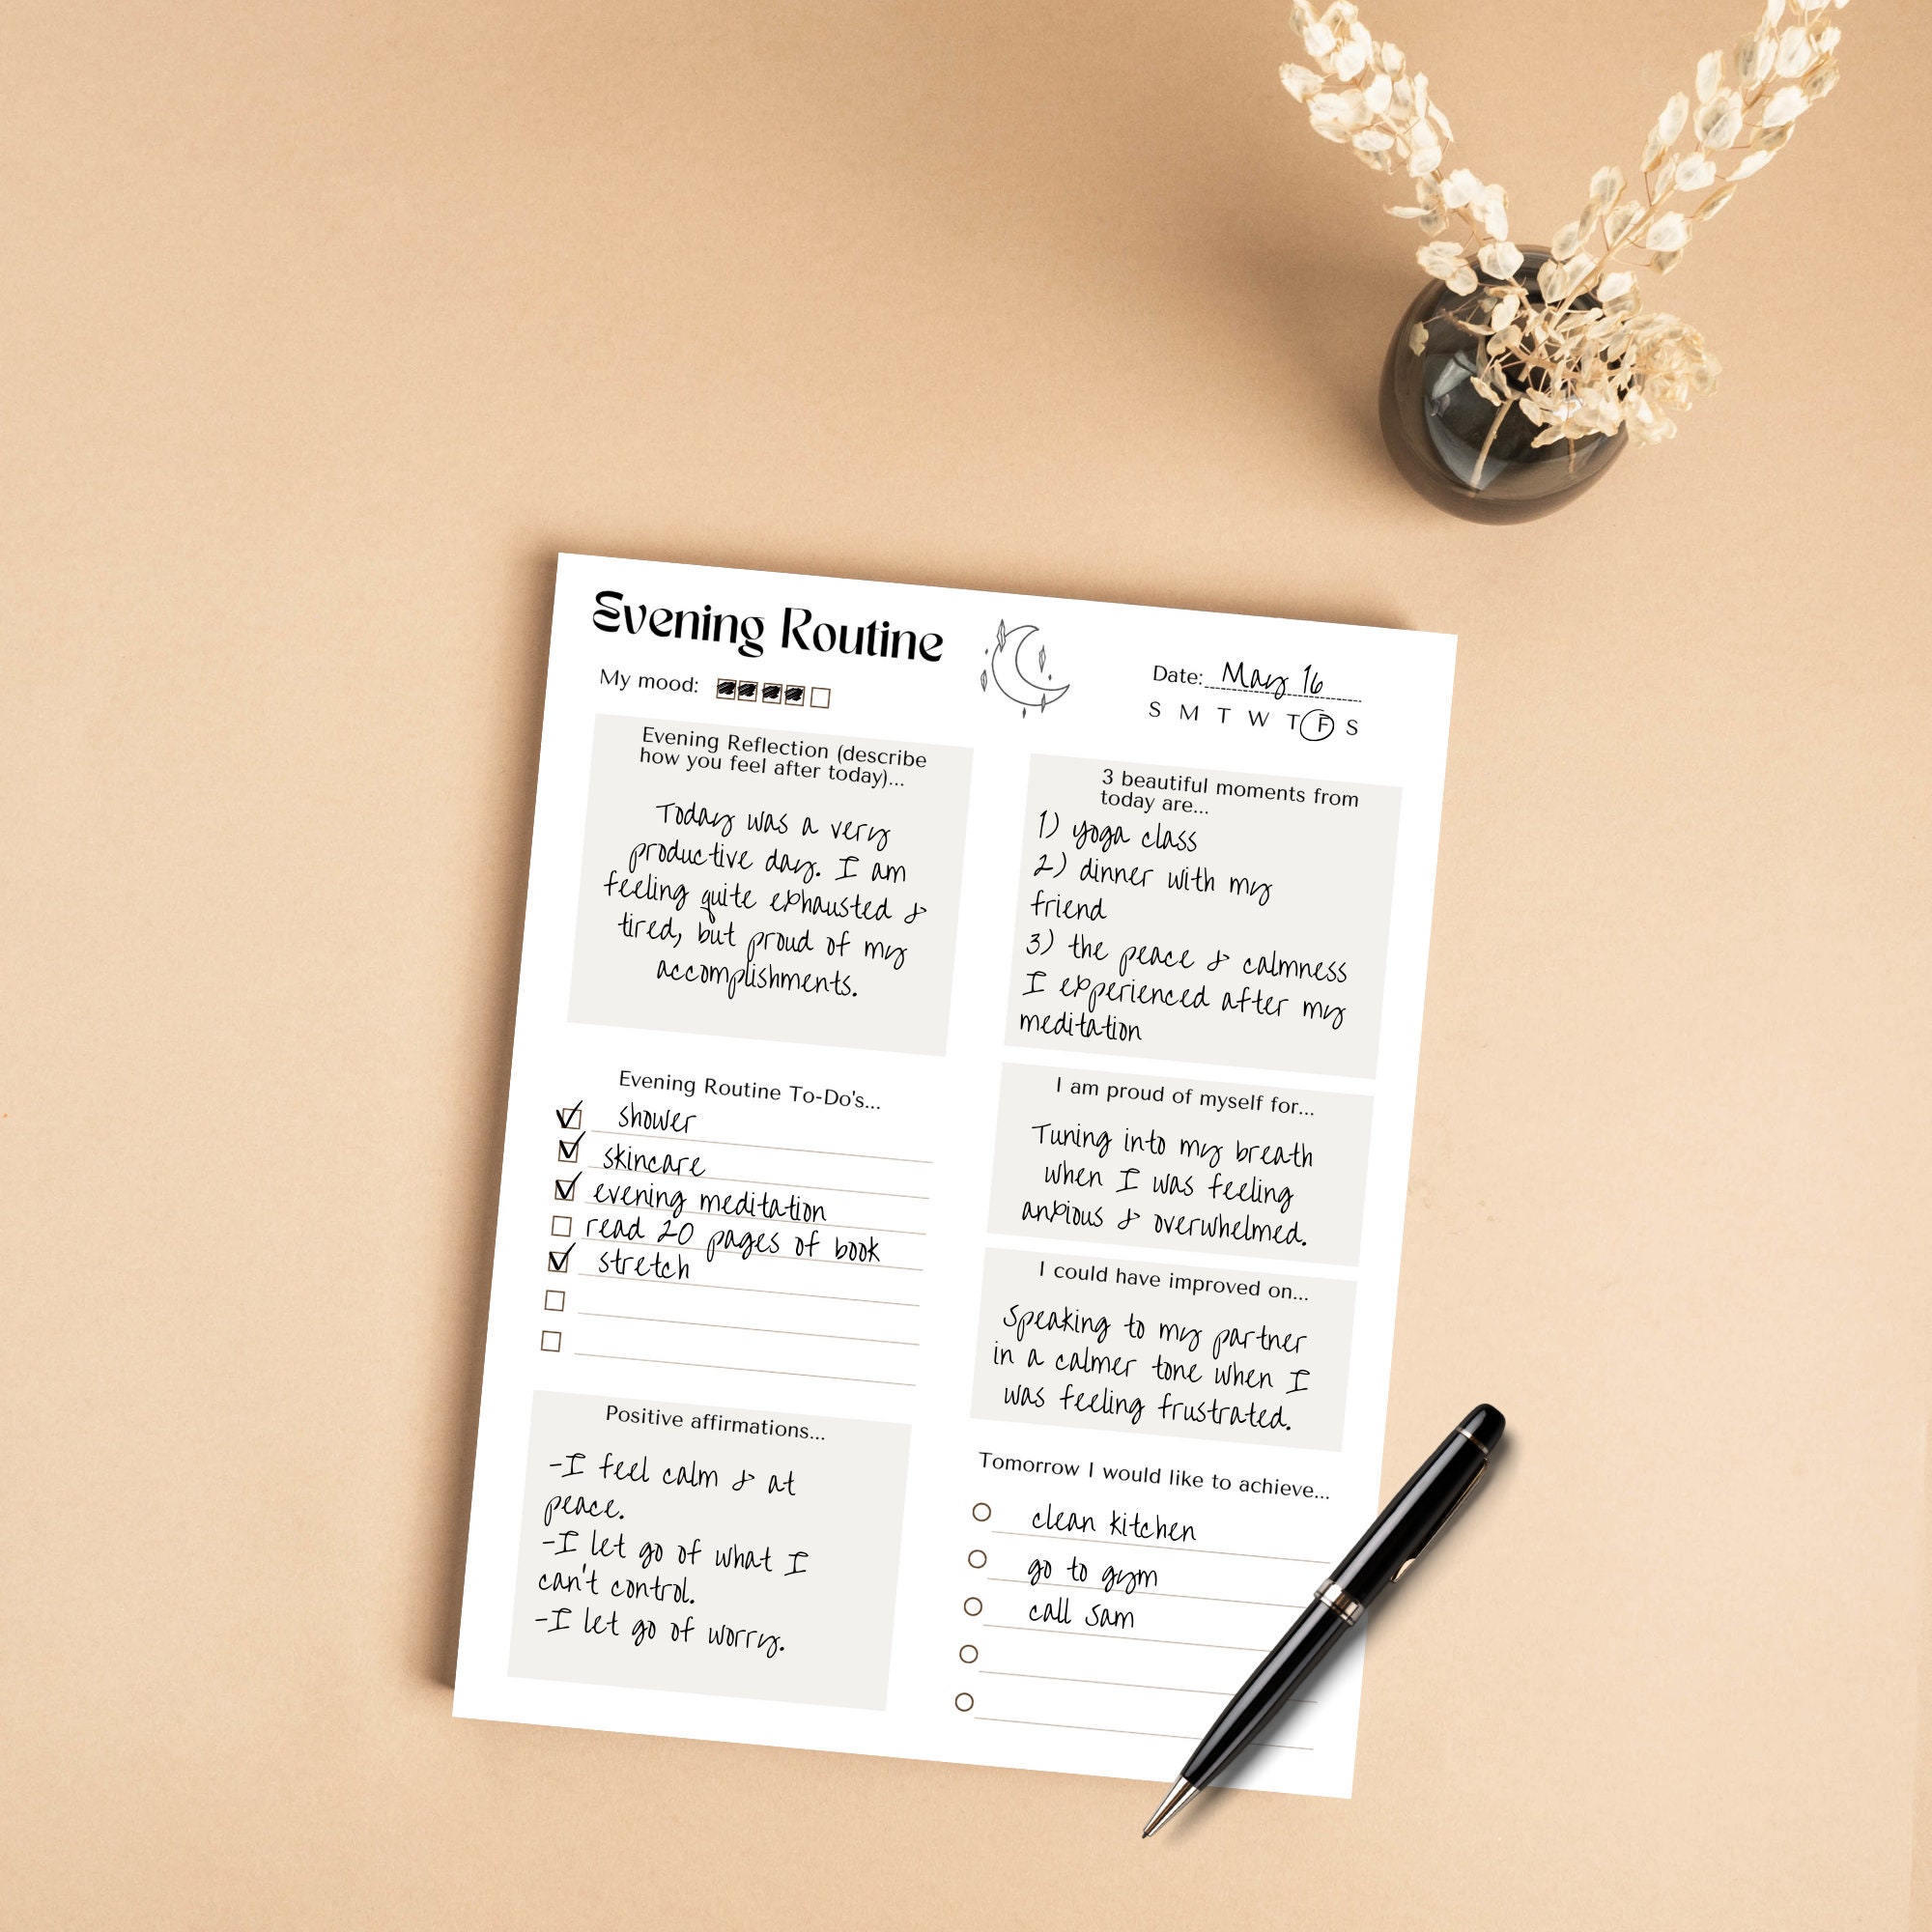 Evening Routine
My mood:
Date: May 16
S M T W T F S
Evening Reflection (describe
how you feel after today)...
Today was a very
productive day. I am
feeling quite exhausted &
tired, but proud of my
accomplishments.
Evening Routine To-Do's...
shower
skincare
evening meditation
read 20 pages of book
stretch
Positive affirmations...
-I feel calm & at
peace.
-I let go of what I
can't control.
-I let go of worry.
3 beautiful moments from
today are...
1) yoga class
2) dinner with my
friend
3) the peace & calmness
I experienced after my
meditation
I am proud of myself for...
Tuning into my breath
when I was feeling
anxious & overwhelmed.
I could have improved on...
Speaking to my partner
in a calmer tone when I
was feeling frustrated.
Tomorrow I would like to achieve...
clean kitchen
go to gym
call Sam